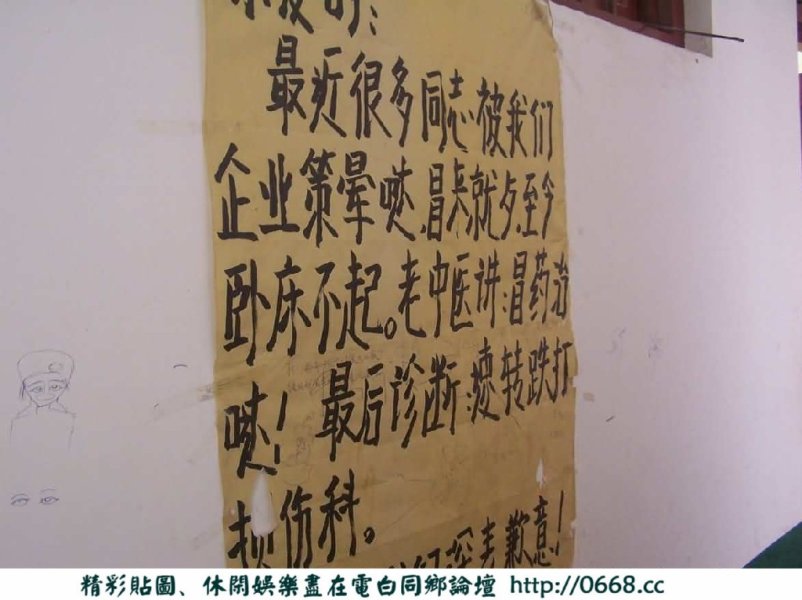 最近很多同志被我们
企业策晕唛,冒来就歺,至今
卧床不起。老中医讲:冒药治
唛!最后诊断:速转跌打
损伤科。
深表歉意!
精彩貼圖、休閑娛樂盡在電白同鄉論壇 http://0668.cc